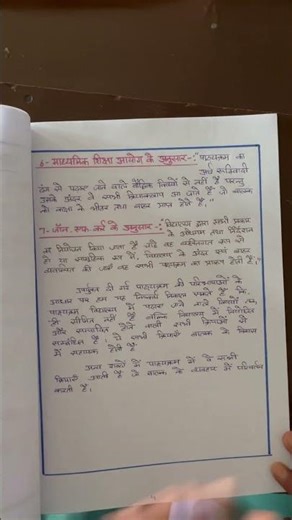 6- माध्यमिक शिक्षा आयोग के अनुसार -: "पाठ्यक्रम का
अर्थ रूढ़िवादी
ढंग से पढ़ाए जाने वाले बौद्धिक विषयों से नहीं है परन्तु
उसके अंदर वे सभी क्रियाकलाप आ जाते हैं जो बालकों
को कक्षा के भीतर तथा बाहर प्राप्त होते हैं।"
7- जॉन, एफ. कर्र के अनुसार -: "विद्यालय द्वारा सभी प्रकार
के अधिगम तथा निर्देशन
का नियोजन किया जाता है चाहे वह व्यक्तिगत रूप से
हो या सामूहिक रूप में, विद्यालय के अंदर एवं बाहर
व्यवस्थित की जाएँ वह सभी पाठ्यक्रम का प्रारूप होती हैं।"
उपर्युक्त दी गई पाठ्यक्रम की परिभाषाओं के
आधार पर हम यह निष्कर्ष निकाल सकते हैं कि
पाठ्यक्रम विद्यालय में पढ़ाए जाने वाले विषयों तक
ही सीमित नहीं है बल्कि विद्यालय में नियोजित
और सम्पादित होने वाली सभी क्रियाओं से
सम्बंधित है। ये सभी क्रियाएँ बालक के विकास
में सहायक होती हैं।
अन्य शब्दों में पाठ्यक्रम में वे सभी
क्रियाएँ आती हैं जो बालक के व्यवहार में परिवर्तन
करती हैं।